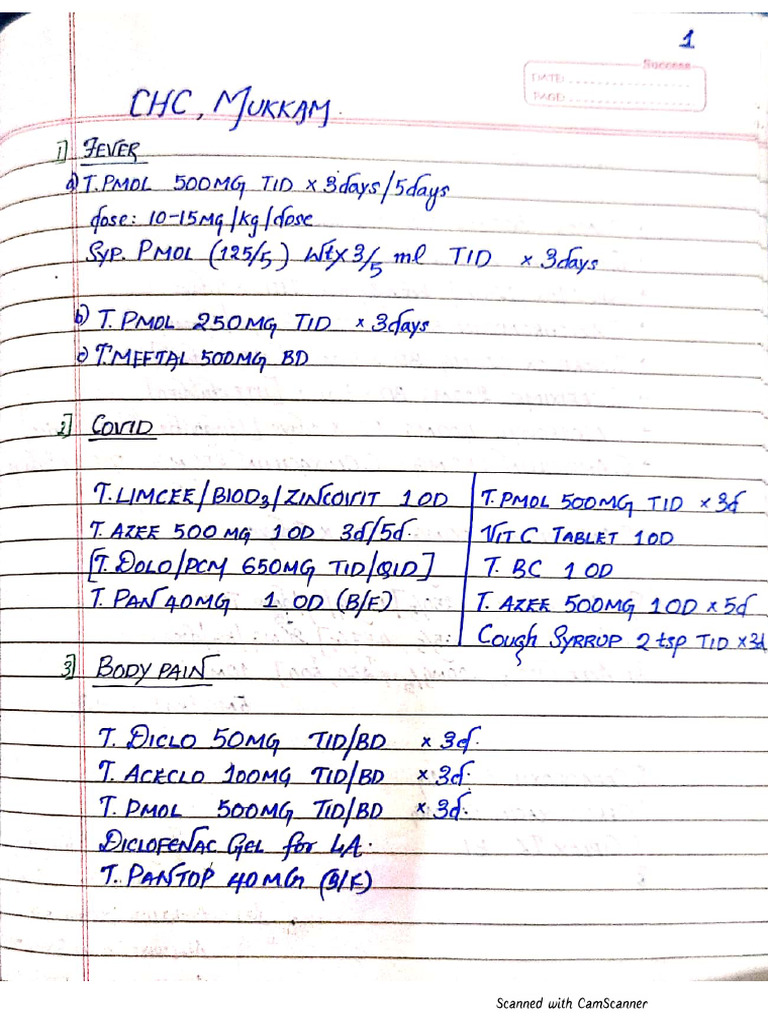 1
Success
DATE:
PAGE:
CHC, MUKKAM.
1] FEVER
a) T. PMOL 500MG TID x 3days/5days
dose: 10-15MG/kg/dose
SYP. PMOL (125/5) Wt x 3/5 ml TID x 3days
b) T. PMOL 250MG TID x 3days
c) T. MEFTAL 500MG BD
2] COVID
T. LIMCEE/BIOD3/ZINCOVIT 1 OD
T. AZEE 500 MG 1 OD 3d/5d.
[T. DOLO/PCM 650MG TID/QID]
T. PAN 40MG 1 OD (B/F)
T. PMOL 500MG TID x 3d
VIT C TABLET 1 OD
T. BC 1 OD
T. AZEE 500MG 1 OD x 5d
COUGH SYRRUP 2 tsp TID x 3d
3] BODY PAIN
T. DICLO 50MG TID/BD x 3d.
T. ACECLO 100MG TID/BD x 3d.
T. PMOL 500MG TID/BD x 3d.
DICLOFENAC GEL for LA.
T. PANTOP 40MG (B/F)
Scanned with CamScanner